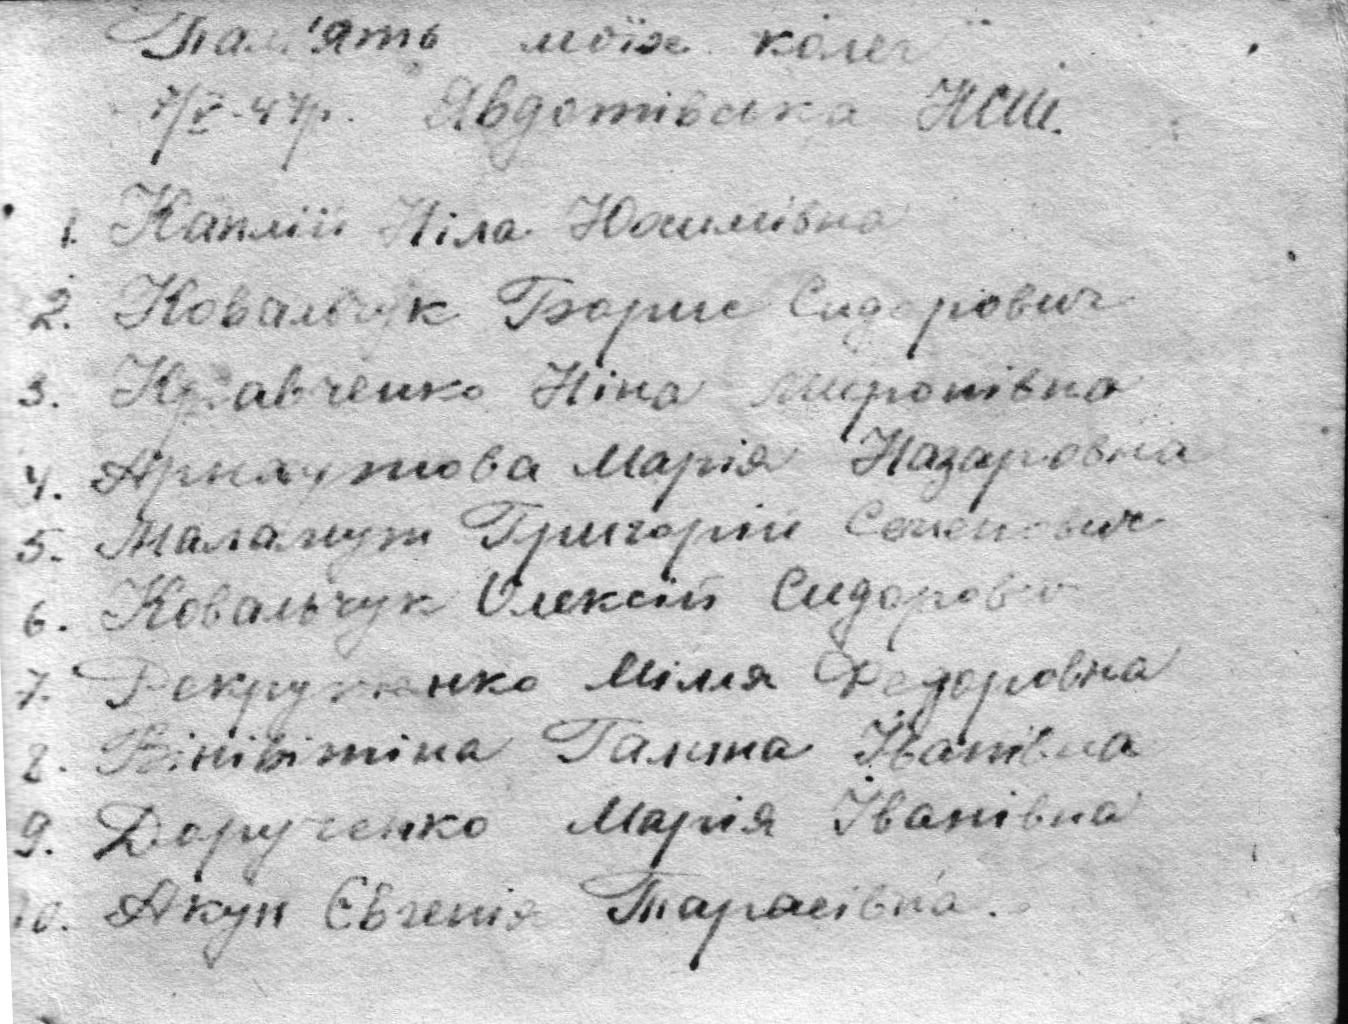 Пам'ять моїх колег
7/V-47р. Явдотівська НСШ.
1. Каплій Ніла Юхимівна
2. Ковальчук Борис Сидорович
3. Кравченко Ніна Миронівна
4. Арнаутова Марія Назаровна
5. Маламуж Григорій Семенович
6. Ковальчук Олексій Сидорович
7. Міля Федоровна
8. Галина Іванівна
9. Дорученко Марія Іванівна
10. Якун Євгенія Тарасівна.